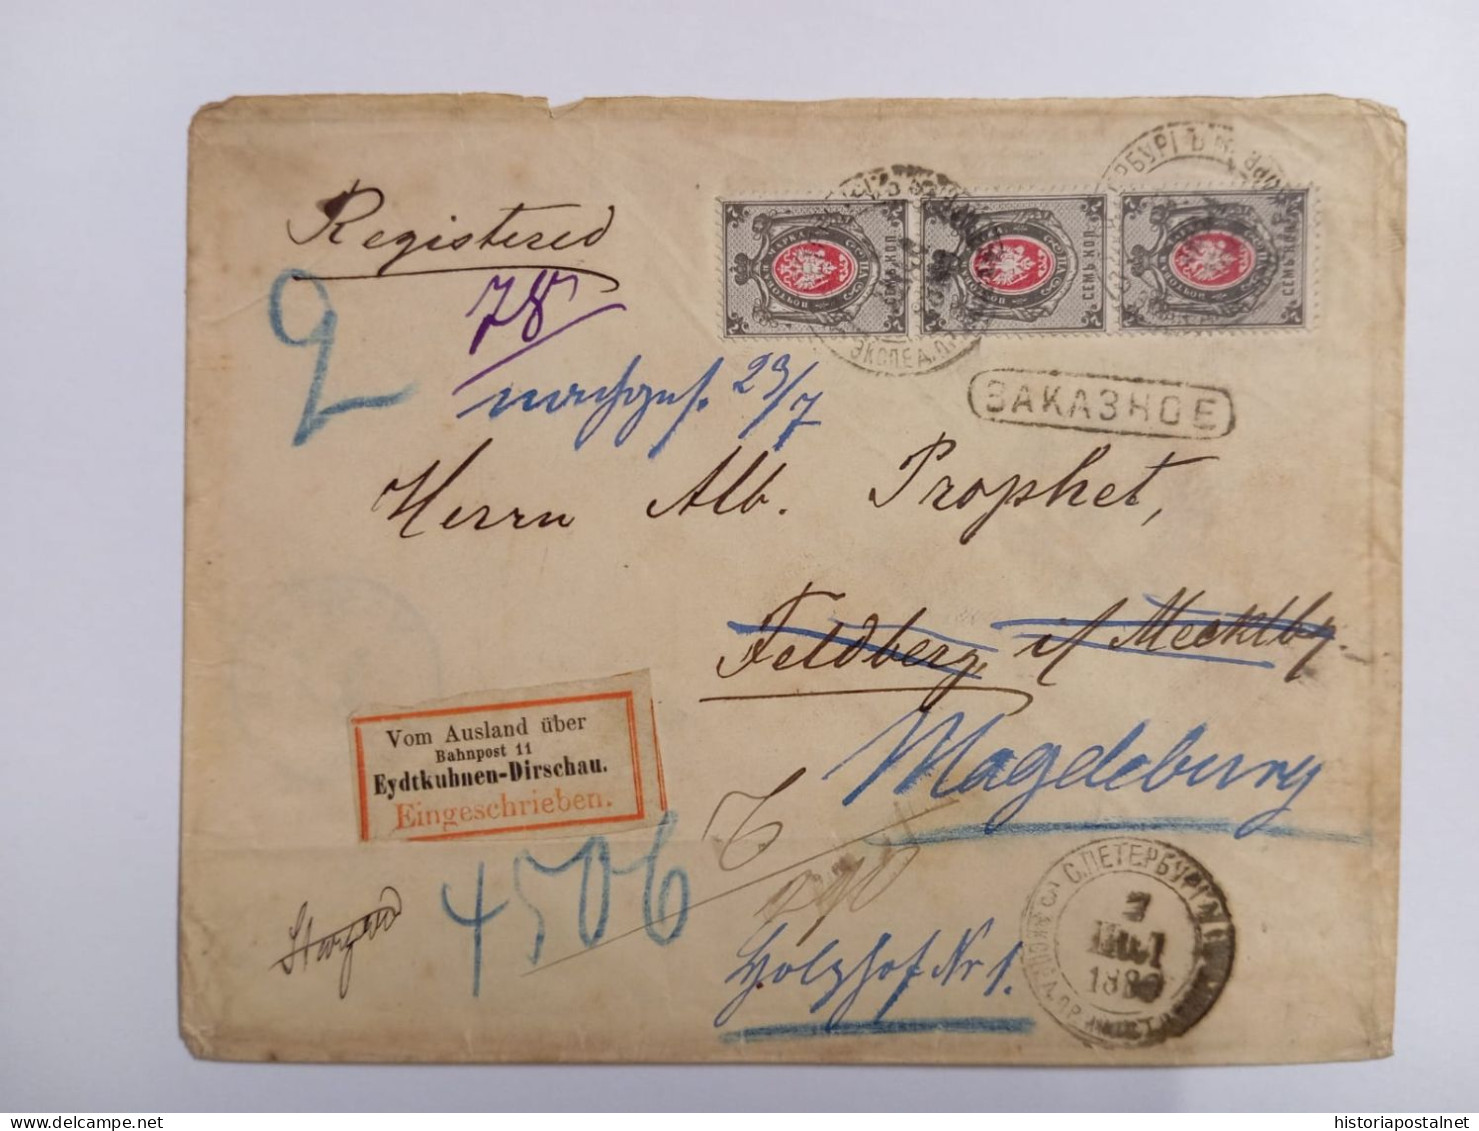 Registered
78
2
nachges. 29/7
СЕМЬ КОП.
СЕМЬ КОП.
СЕМЬ КОП.
ЗАКАЗНОЕ
Herrn Alb. Prophet,
Feldberg, i/ Mecklbg.
Magdeburg
Vom Ausland über
Bahnpost 11
Eydtkuhnen-Dirschau.
Eingeschrieben.
4506
Holzhof Nr 1.
С.ПЕТЕРБУРГЪ
7
ІЮЛ
1880
historiapostalnet